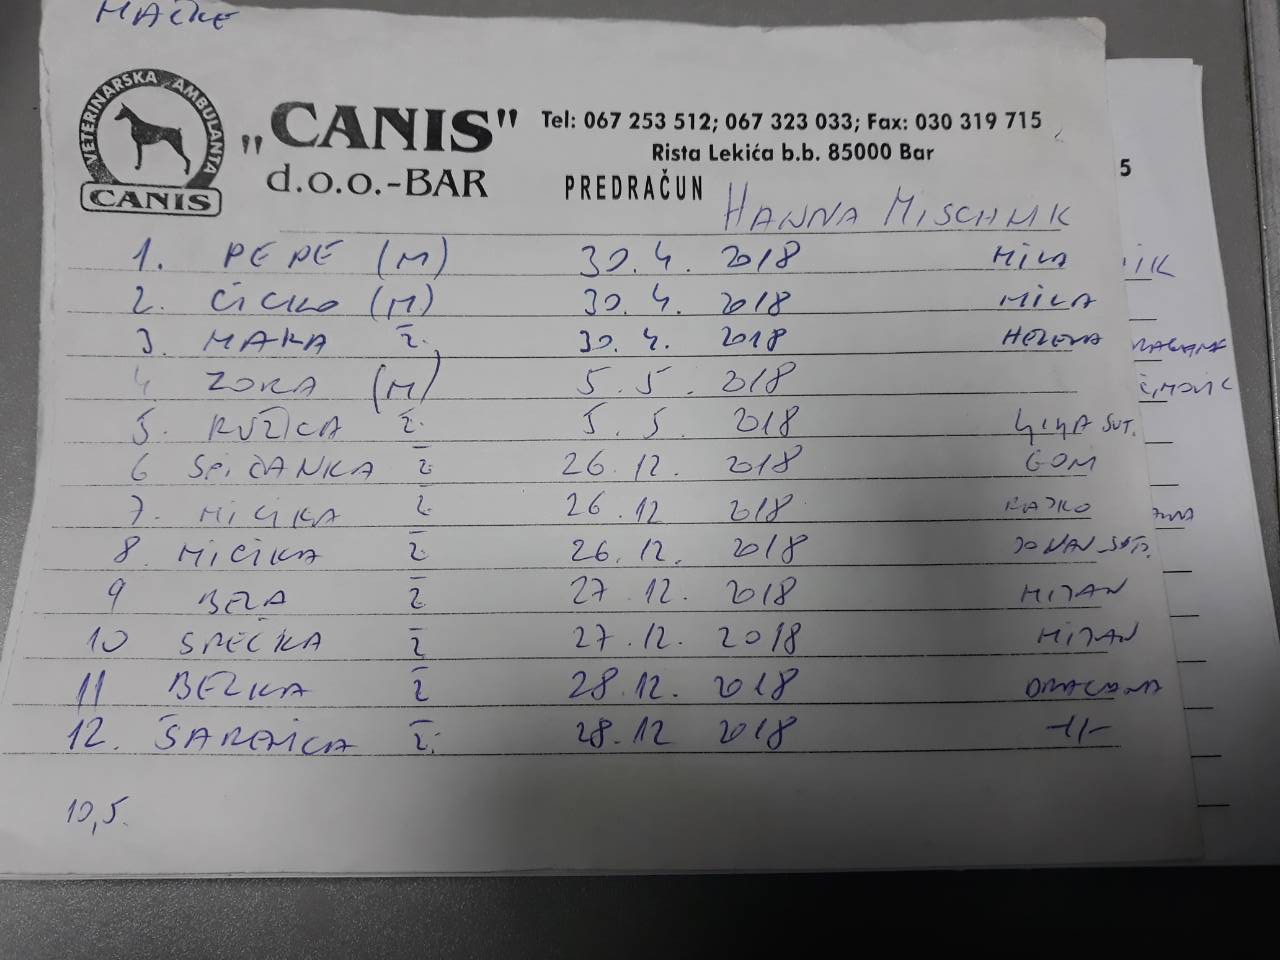 MAČKE
VETERINARSKA AMBULANTA
CANIS
„CANIS"
d.o.o.-BAR
Tel: 067 253 512; 067 323 033; Fax: 030 319 715
Rista Lekića b.b. 85000 Bar
PREDRAČUN HANNA MISCHNIK
1. PEPE (M) 30. 4. 2018 MILA
2. CICKO (M) 30. 4. 2018 MILA
3. MARA ž. 30. 4. 2018 HELENA
4 ZORA (M) 5. 5. 2018
5. RUŽICA ž. 5. 5. 2018 SUT.
6 SPIČANKA ž 26. 12. 2018 GOM
7. MICIKA ž 26. 12 2018 RAJKO
8. MICIKA ž. 26. 12. 2018
9 BEZA ž 27 12. 2018 MIJAN
10 SPEČKA ž 27. 12. 2018 MIJAN
11 BEZKA ž 28. 12. 2018 DRAGANA
12. ŠARENICA ž. 28. 12 2018 -11-
10,5.
5
NIK